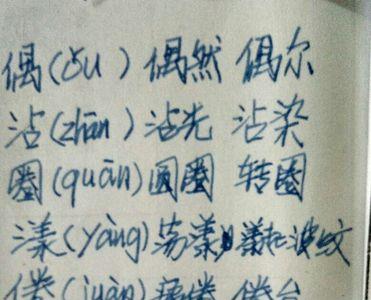 偶(ǒu) 偶然 偶尔
沾(zhān) 沾光 沾染
圈(quān) 圆圈 转圈
漾(yàng) 荡漾 漾起波纹
倦(juàn) 疲倦 倦怠